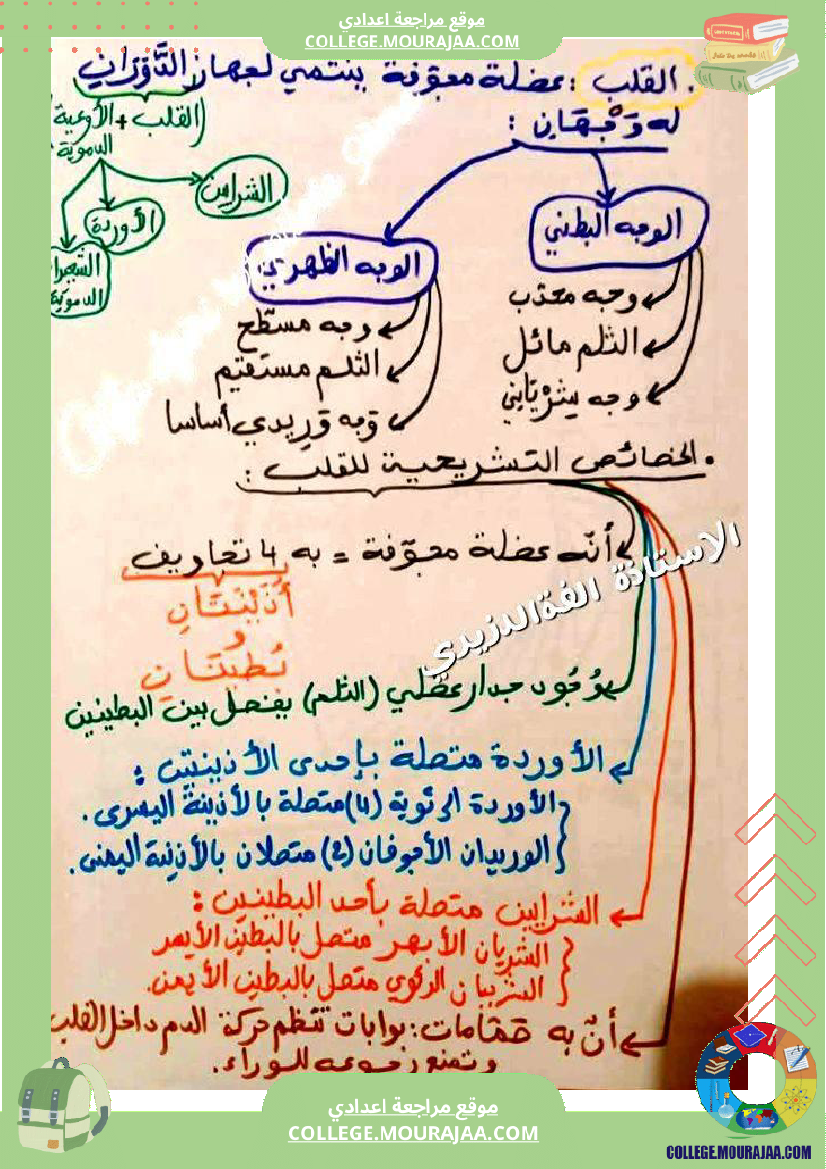 موقع مراجعة اعدادي
COLLEGE.MOURAJAA.COM
. القلب : عضلة مجوّفة ينتمي لجهاز الدَّوَرَانِ
(القلب + الأوعية
الدموية
له وَجْهَانِ :
الشرايين
الأوردة
الدموية
الوجه البطني
الوجه الظهري
وجه محدّب
الثلم مائل
وجه شِرْيَانِي
وجه مسطّح
الثلم مستقيم
وَجه وَرِيدي أساسا
. الخصائص التشريحية للقلب :
أنّه عضلة مجوّفة = به 4 تجاويف
أُذَيْنَتَانِ
و
بُطَيْنَانِ
وُجُود جدار عضلي (الثلم) يفصل بين البطينين
الأوردة متصلة بإحدى الأذينتين :
الأوردة الرئوية (4) متصلة بالأذينة اليسرى .
الوريدان الأجوفان (2) متصلان بالأذينة اليمنى .
الشرايين متصلة بأحد البطينين :
الشريان الأبهر متصل بالبطين الأيسر
الشريان الرئوي متصل بالبطين الأيمن .
أنّ به صَمَّامات : بوابات تنظم حركة الدم داخل القلب
وتمنع رجوعه للوراء .
الاستاذة الفة الدزيدي
موقع مراجعة اعدادي
COLLEGE.MOURAJAA.COM
COLLEGE.MOURAJAA.COM